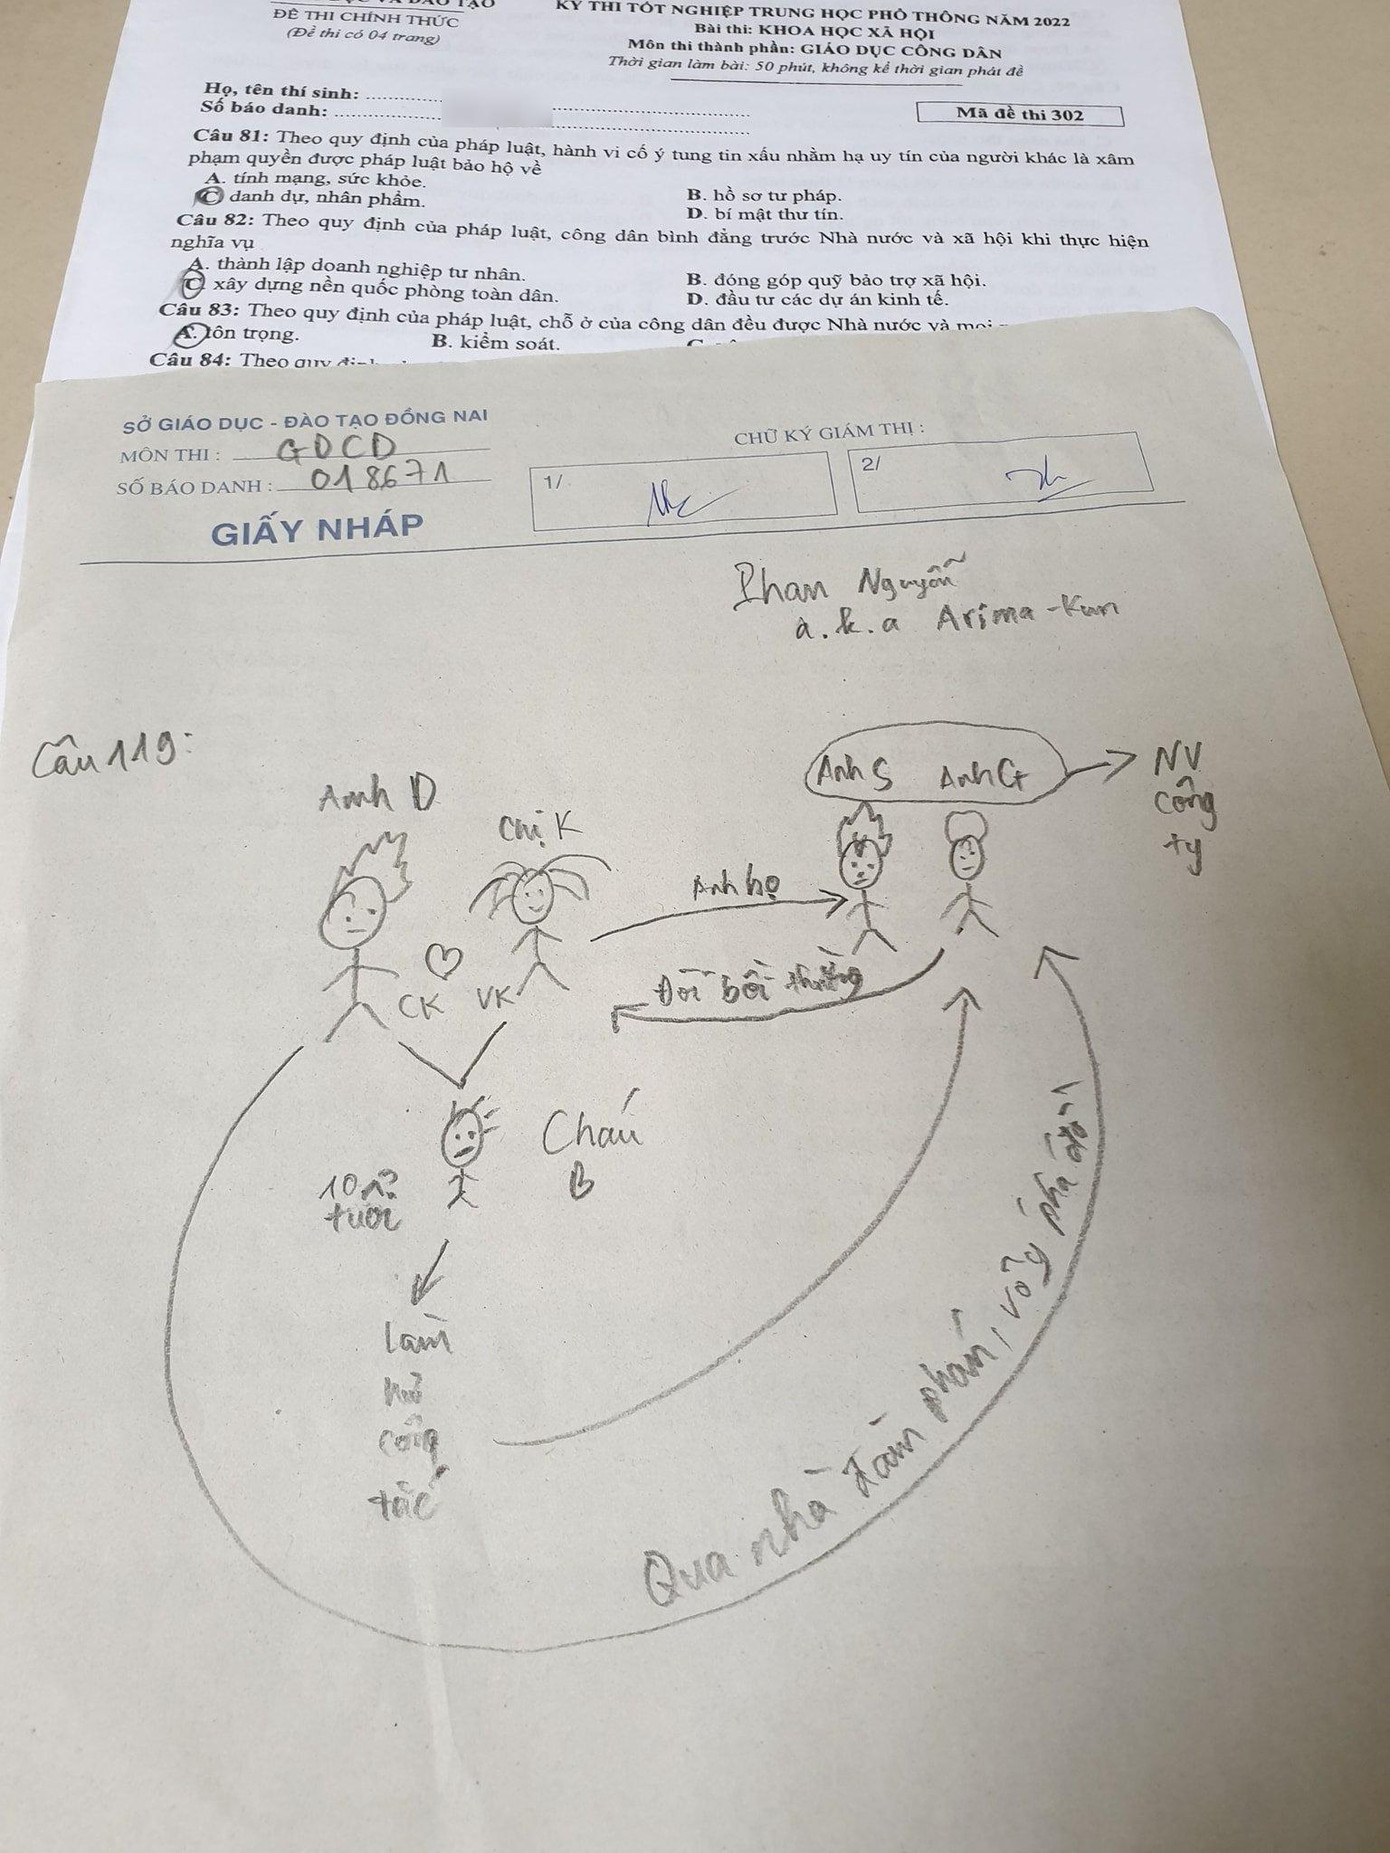 ĐỀ THI CHÍNH THỨC
(Đề thi có 04 trang)
KỲ THI TỐT NGHIỆP TRUNG HỌC PHỔ THÔNG NĂM 2022
Bài thi: KHOA HỌC XÃ HỘI
Môn thi thành phần: GIÁO DỤC CÔNG DÂN
Thời gian làm bài: 50 phút, không kể thời gian phát đề
Họ, tên thí sinh:
Số báo danh:
Mã đề thi 302
Câu 81: Theo quy định của pháp luật, hành vi cố ý tung tin xấu nhằm hạ uy tín của người khác là xâm
phạm quyền được pháp luật bảo hộ về
A. tính mạng, sức khỏe.
B. hồ sơ tư pháp.
C. danh dự, nhân phẩm.
D. bí mật thư tín.
Câu 82: Theo quy định của pháp luật, công dân bình đẳng trước Nhà nước và xã hội khi thực hiện
nghĩa vụ
A. thành lập doanh nghiệp tư nhân.
B. đóng góp quỹ bảo trợ xã hội.
C. xây dựng nền quốc phòng toàn dân.
D. đầu tư các dự án kinh tế.
Câu 83: Theo quy định của pháp luật, chỗ ở của công dân đều được Nhà nước và mọi
A. tôn trọng.
B. kiểm soát.
Câu 84: Theo quy định
SỞ GIÁO DỤC - ĐÀO TẠO ĐỒNG NAI
MÔN THI : GDCD
SỐ BÁO DANH : 018671
GIẤY NHÁP
CHỮ KÝ GIÁM THỊ :
1/
2/
Phan Nguyễn
a.k.a Arima-Kun
Câu 119:
Anh D
Chị K
Anh S
Anh G
NV
công
ty
Anh họ
Đòi bồi thường
CK
VK
Cháu
B
10
tuổi
làm
hư
công
tắc
Qua nhà đàm phán, vô ý phá đồ